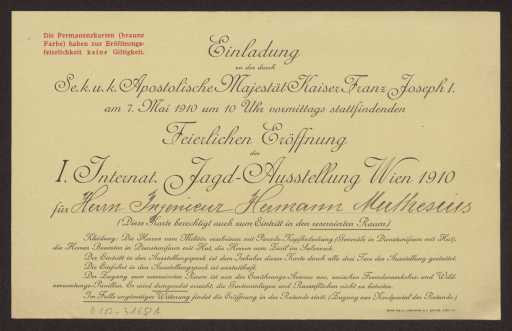 Die Permanenzkarten (braune
Farbe) haben zur Eröffnungs-
feierlichkeit keine Gültigkeit.
Einladung
zu der durch
Se. k. u. k. Apostolische Majestät Kaiser Franz Joseph I.
am 7. Mai 1910 um 10 Uhr vormittags stattfindenden
Feierlichen Eröffnung
der
I. Internat. Jagd-Ausstellung Wien 1910
für Herrn Ingenieur Hermann Muthesius
(Diese Karte berechtigt auch zum Eintritt in den reservierten Raum)
Kleidung: Die Herren vom Militär erscheinen mit Parade-Kopfbedeckung (Generale in Dienstuniform mit Hut),
die Herren Beamten in Dienstuniform mit Hut, die Herren vom Zivil im Salonrock.
Der Eintritt in den Ausstellungspark ist den Inhaber dieser Karte durch alle drei Tore der Ausstellung gestattet.
Die Einfahrt in den Ausstellungspark ist unstatthaft.
Der Zugang zum reservierten Raum ist von der Ernährungs-Avenue aus, zwischen Forstindustrie- und Wild-
verwertungs-Pavillon. Es wird dringendst ersucht, die Gartenanlagen und Rasenflächen nicht zu betreten.
Im Falle ungünstiger Witterung findet die Eröffnung in der Rotunde statt (Zugang zur Nordportal der Rotunde.)